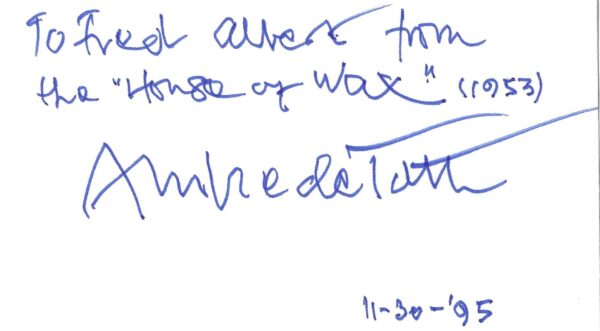 To Fred Albert from
the "House of Wax" (1953)
André de Toth
11-30-'95